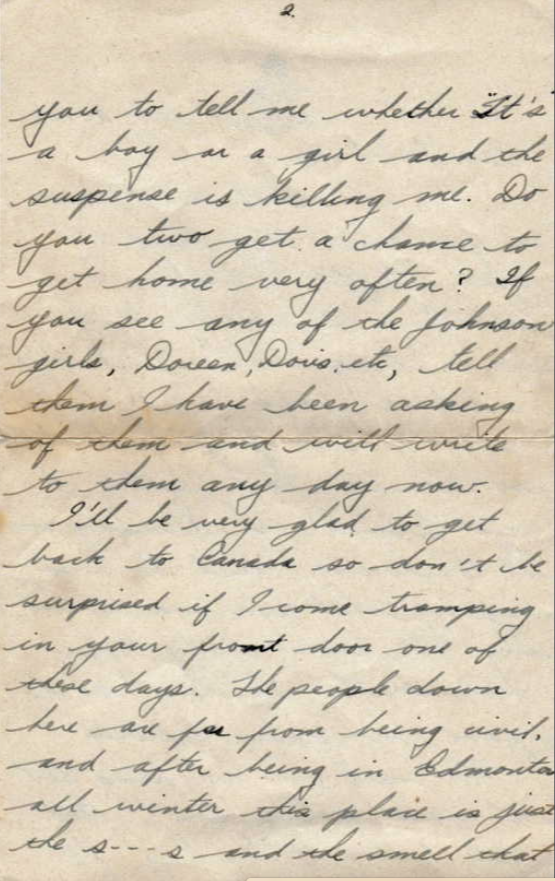 2.
you to tell me whether "It's"
a boy or a girl and the
suspense is killing me. Do
you two get a chance to
get home very often? If
you see any of the Johnson
girls, Doreen, Doris, etc, tell
them I have been asking
of them and will write
to them any day now.
I'll be very glad to get
back to Canada so don't be
surprised if I come tramping
in your front door one of
these days. The people down
here are far from being civil,
and after being in Edmonton
all winter this place is just
the s---s and the smell that